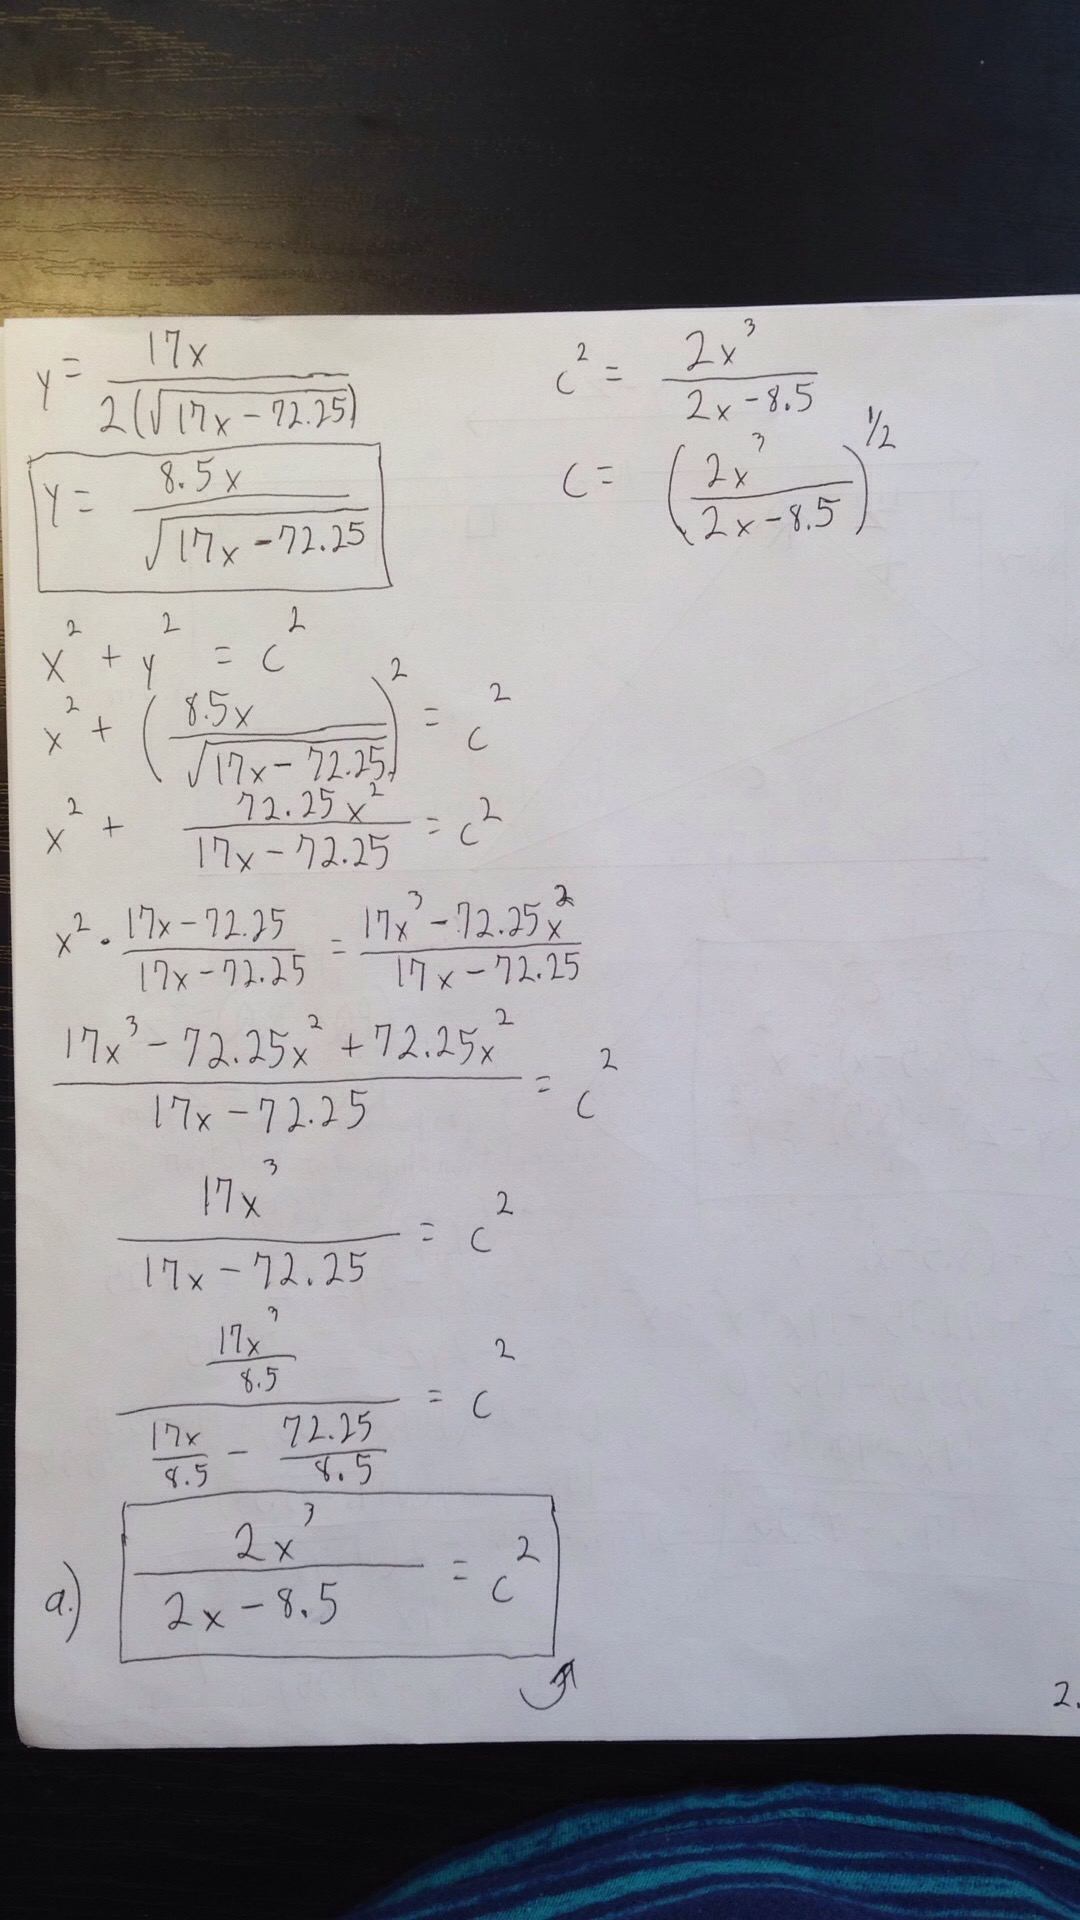 y = 17x / 2(√17x - 72.25)
y = 8.5x / √17x - 72.25
x² + y² = c²
x² + (8.5x / √17x - 72.25)² = c²
x² + 72.25x² / 17x - 72.25 = c²
x² · 17x - 72.25 / 17x - 72.25 = 17x³ - 72.25x² / 17x - 72.25
17x³ - 72.25x² + 72.25x² / 17x - 72.25 = c²
17x³ / 17x - 72.25 = c²
17x³/8.5 / 17x/8.5 - 72.25/8.5 = c²
a.) 2x³ / 2x - 8.5 = c²
c² = 2x³ / 2x - 8.5
c = (2x³ / 2x - 8.5)^1/2
2.